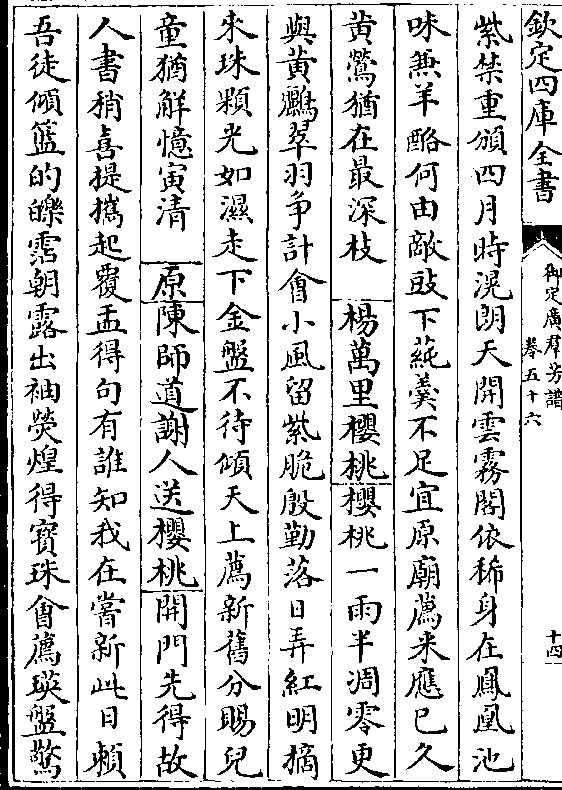 欽定四庫全書
御定廣羣芳譜
卷五十六
十四
紫禁重頒四月時滉朗天開雲霧閣依稀身在鳳凰池
味兼羊酪何由敵豉下蒓羹不足宜原廟薦來應已久
黄鶯猶在最深枝　楊萬里櫻桃櫻桃一雨半凋零更
與黄鸝翠羽争計會小風留紫脆殷勤落日弄紅明摘
來珠顆光如濕走下金盤不待傾天上薦新舊分賜兒
童猶解憶寅清　原陳師道謝人送櫻桃開門先得故
人書稍喜提攜起覆盂得句有誰知我在嘗新此日頼
吾徒傾籃的皪霑朝露出袖熒煌得寳珠會薦瑛盤驚